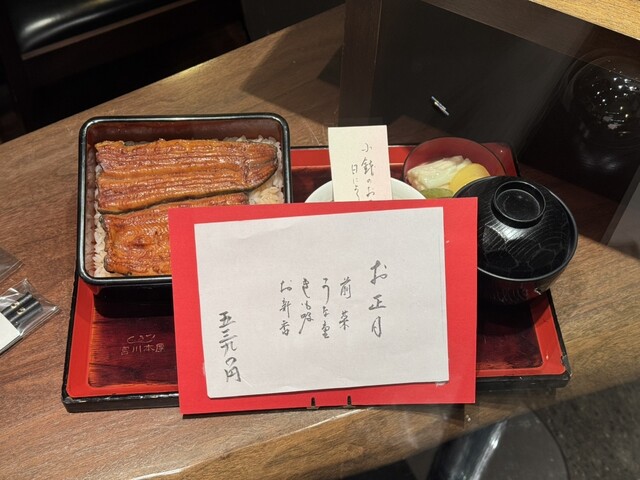 お正月
前菜
うな重
きも吸
お新香
五三九〇円
小鉢のお
日にそ
川本屋